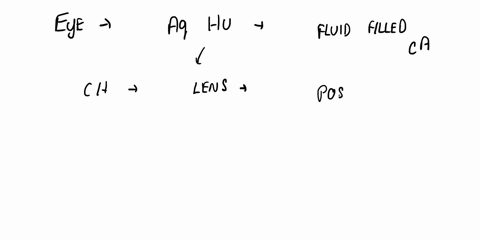 Eye → Aq Hu → FLUID FILLED
CA
CH → LENS → POS